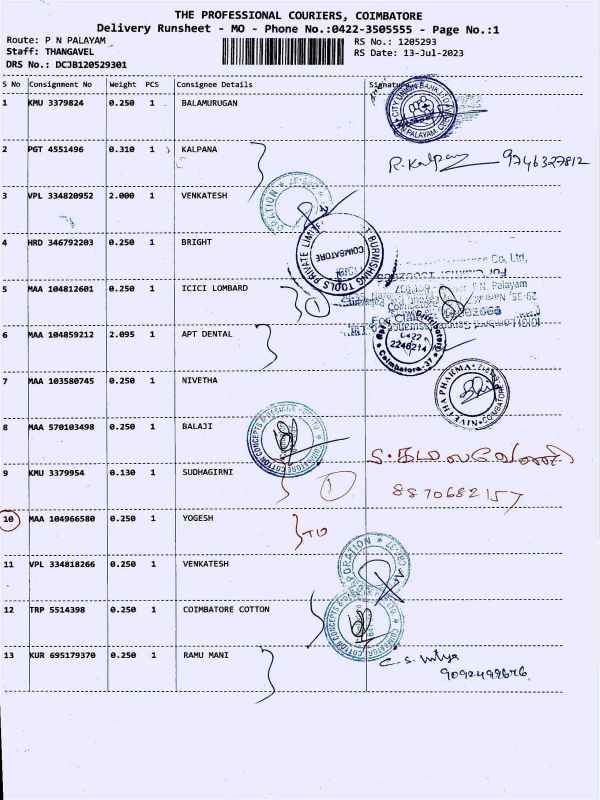 THE PROFESSIONAL COURIERS, COIMBATORE
Delivery Runsheet - MO - Phone No.:0422-3505555 - Page No.:1
Route: P N PALAYAM
Staff: THANGAVEL
DRS No.: DCJB120529301
RS No.: 1205293
RS Date: 13-Jul-2023
S No Consignment No Weight PCS Consignee Details Signature
1 KMU 3379824 0.250 1 BALAMURUGAN
CITY UNION BANK LTD
2 PGT 4551496 0.310 1 KALPANA R. Kalpana 9746327812
3 VPL 334820952 2.000 1 VENKATESH
4 HRD 346792203 0.250 1 BRIGHT
BURNISHING TOOLS PRIVATE LIMITED
COIMBATORE
5 MAA 104812601 0.250 1 ICICI LOMBARD
6 MAA 104859212 2.095 1 APT DENTAL
0422
2246214
Coimbatore-37
7 MAA 103580745 0.250 1 NIVETHA
NIVETHA PHARMA
COIMBATORE
8 MAA 570103498 0.250 1 BALAJI
COTTON CONCEPTS & DESIGNS
COIMBATORE
9 KMU 3379954 0.130 1 SUDHAGIRNI
8870682157
10 MAA 104966580 0.250 1 YOGESH
11 VPL 334818266 0.250 1 VENKATESH
12 TRP 5514398 0.250 1 COIMBATORE COTTON
13 KUR 695179370 0.250 1 RAMU MANI
9092499676